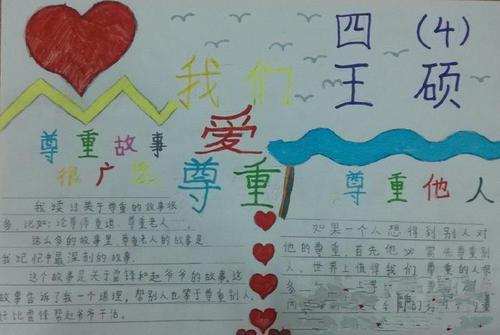 四（4）
王硕
我们
爱
尊重
尊重故事
很广
我读过关于尊重的故事很
多，比如：论尊师重道、尊重老人……
这么多的故事里，尊重老人的故事是
我记忆中最深刻的故事。
这个故事是关于雷锋和赵爷爷的故事，这
故事告诉了我一个道理，帮别人也等于尊重别人，
好比雷锋帮赵爷爷干活。
尊重他人
如果一个人想得到别人对
他的尊重，首先他必需去尊重别
人，世界上值得我们尊重的人很